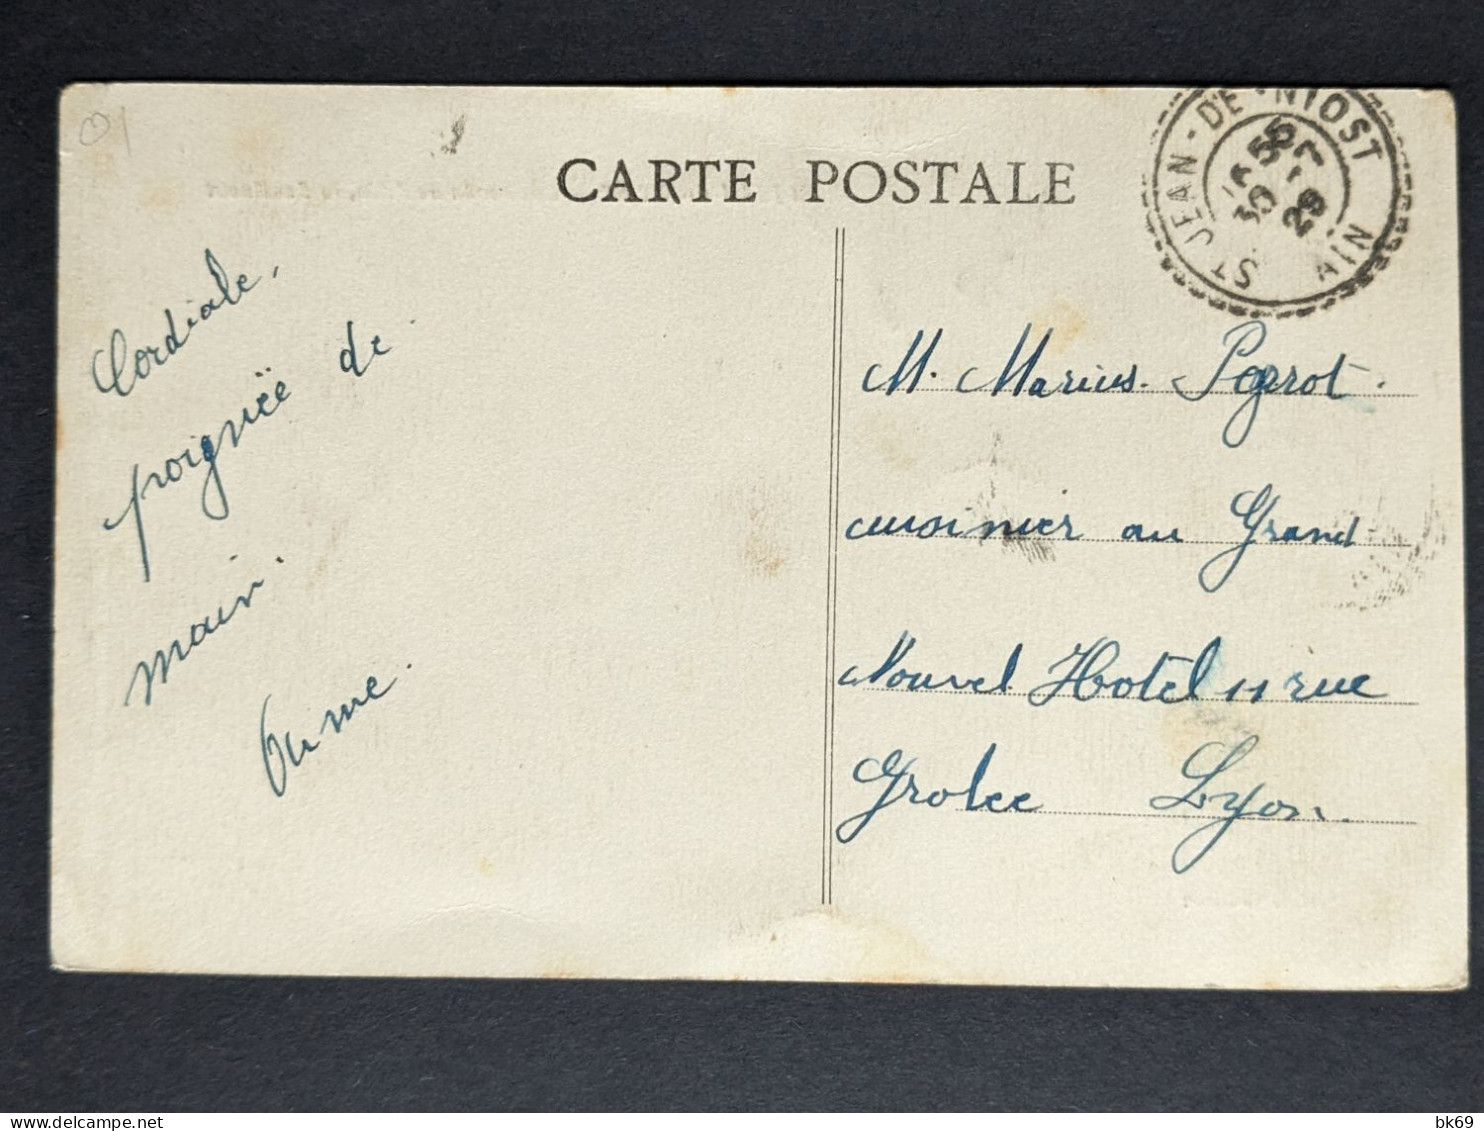 01
CARTE POSTALE
ST JEAN-DE-NIOST
16 55
30 -7
29
AIN
Cordiale,
poignée de
main.
M. Marius
cuisinier au Grand
Nouvel Hotel 11 rue
Grolee Lyon.
bk69